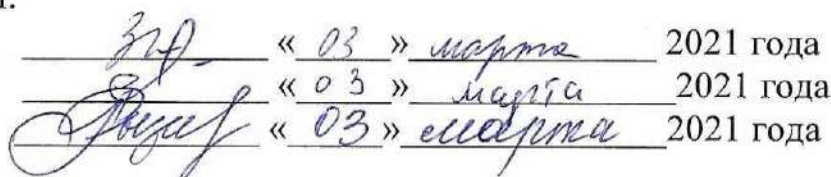 « 03 » марта 2021 года
« 03 » марта 2021 года
« 03 » марта 2021 года